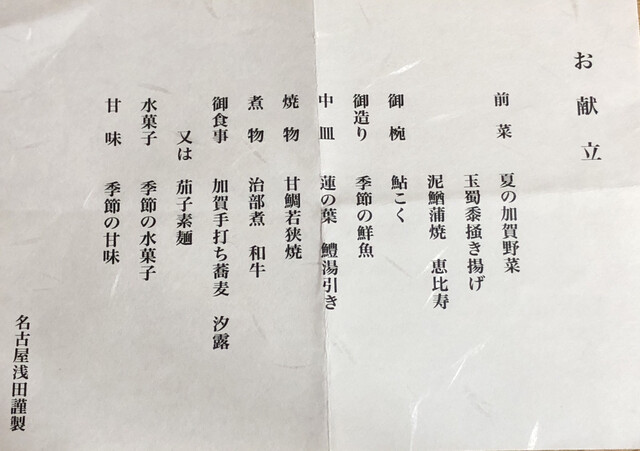 お献立
前菜 夏の加賀野菜
玉蜀黍掻き揚げ
泥鰌蒲焼 恵比寿
御椀 鮎こく
御造り 季節の鮮魚
中皿 蓮の葉 鱧湯引き
焼物 甘鯛若狭焼
煮物 治部煮 和牛
御食事 加賀手打ち蕎麦 汐露
又は 茄子素麺
水菓子 季節の水菓子
甘味 季節の甘味
名古屋浅田謹製